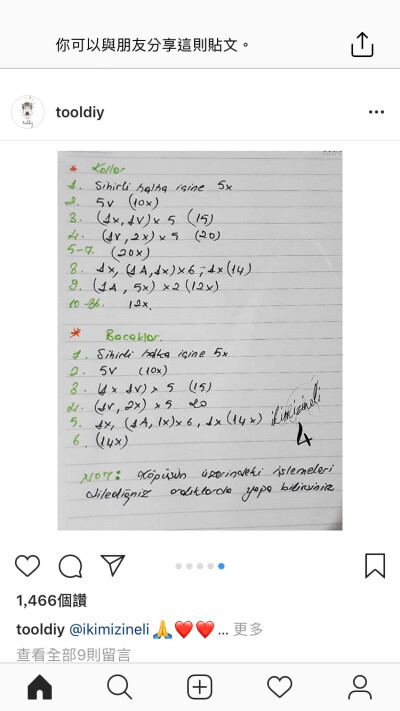 你可以與朋友分享這則貼文。
tooldiy
* Kollar
1. Sihirli halka içine 5x
2. 5V (10x)
3. (1x, 1V) x 5 (15)
4. (1V, 2x) x 5 (20)
5-7. (20x)
8. 1x, (1A, 1x) x 6, 1x (14)
9. (1A, 5x) x 2 (12x)
10-36. 12x.
* Bacaklar.
1. Sihirli halka içine 5x
2. 5V (10x)
3. (1x 1V) x 5 (15)
4. (1V, 2x) x 5 20
5. 1x, (1A, 1x) x 6, 1x (14x)
6. (14x)
ikimizineli
4
NOT: üzerindeki işlemeleri
dilediğiniz yapa bilirsiniz
1,466個讚
tooldiy @ikimizineli 🙏❤️❤️ ... 更多
查看全部9則留言